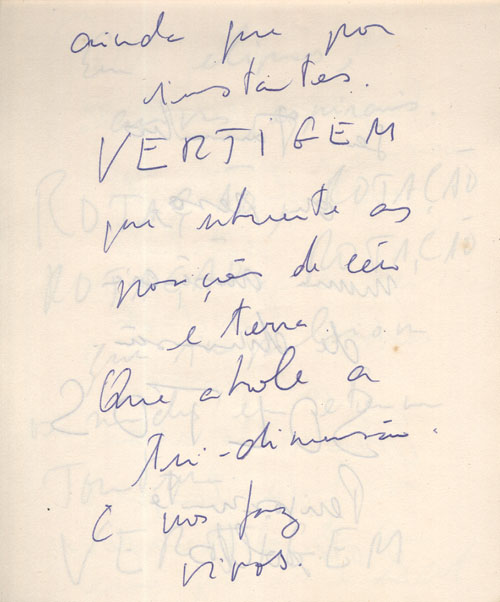 ainda que por
instantes.
VERTIGEM
que subverte as
posições de céu
e terra
Que abole a
tri-dimensão.
E nos faz
vivos.
ROTAÇÃO
ROTAÇÃO